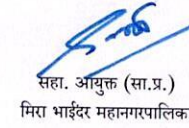 सहा. आयुक्त (सा.प्र.)
मिरा भाईंदर महानगरपालिक